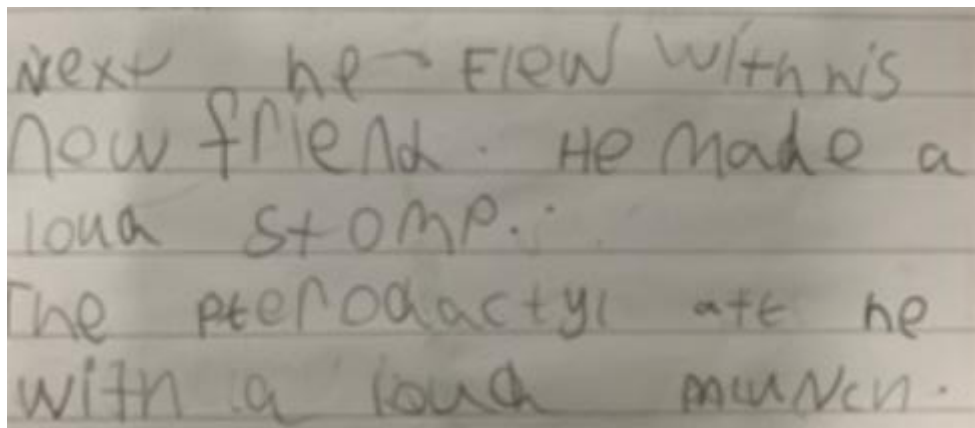 Next he Flew with his
new friend. He made a
loud stomp.
The pterodactyl ate he
with a loud munch.